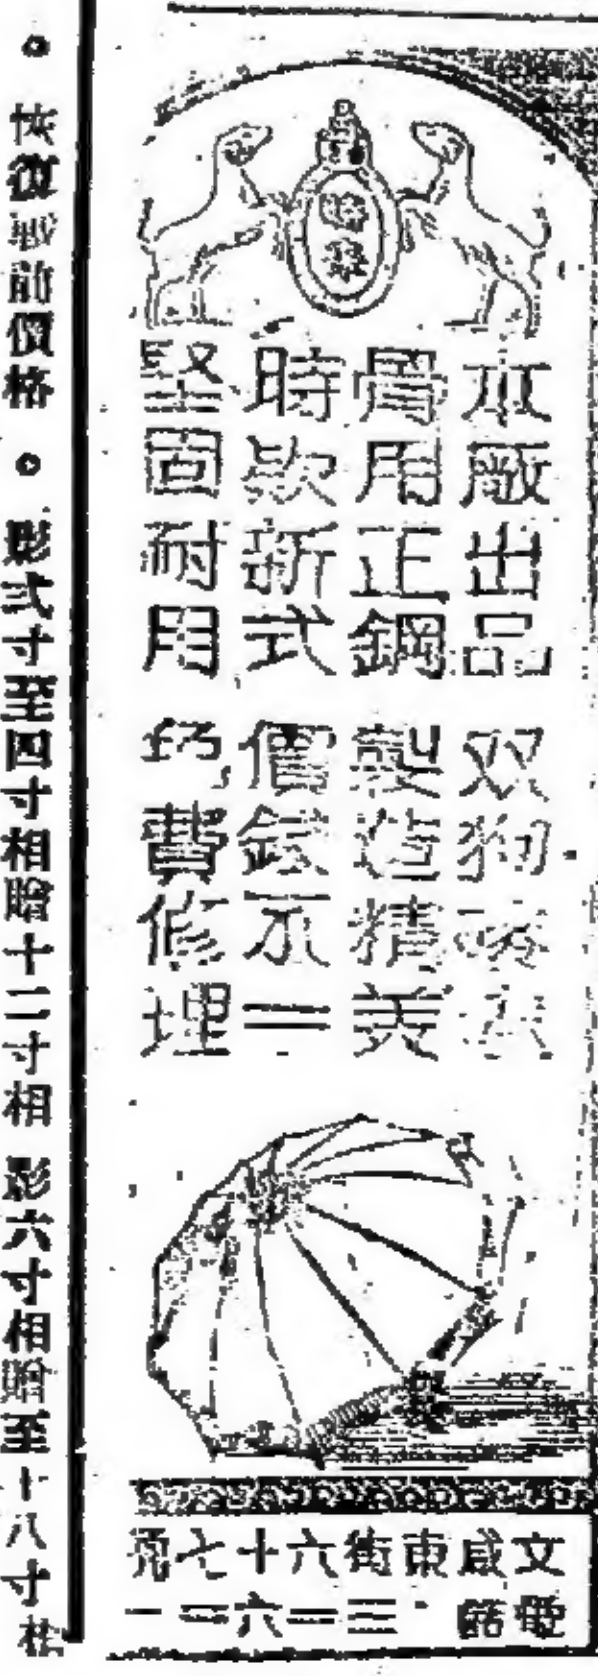 本廠出品 双狗
骨用正鋼 製造精美
時欵新式 價錢不二
堅固耐用 免費修理
文咸東街六十七號
電話 三二六二一
。恢復戰前價格。影弍寸至四寸相贈十二寸相 影六寸相贈至十八寸